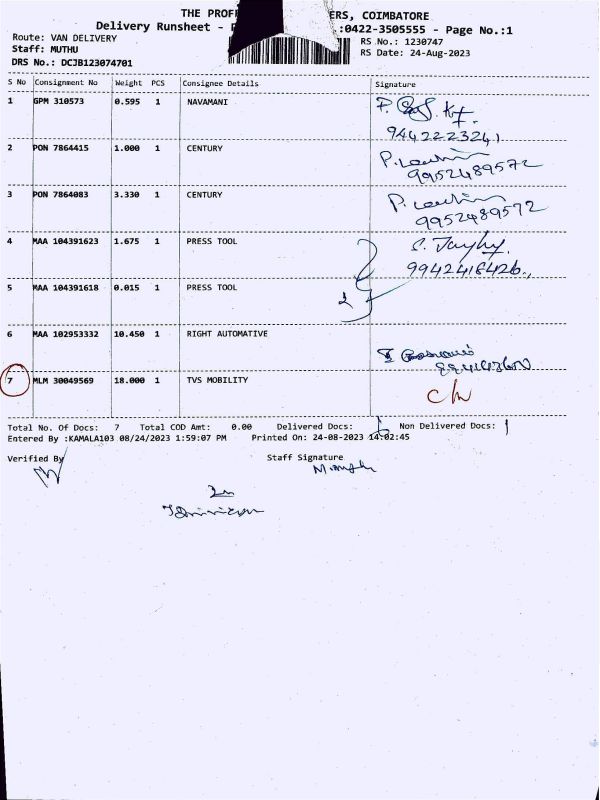 THE PROF ERS, COIMBATORE
Delivery Runsheet - :0422-3505555 - Page No.:1
Route: VAN DELIVERY RS No.: 1230747
Staff: MUTHU RS Date: 24-Aug-2023
DRS No.: DCJB123074701
S No Consignment No Weight PCS Consignee Details Signature
1 GPM 310573 0.595 1 NAVAMANI
9442223241
2 PON 7864415 1.000 1 CENTURY
9952489572
3 PON 7864083 3.330 1 CENTURY
9952489572
4 MAA 104391623 1.675 1 PRESS TOOL
9942418426
5 MAA 104391618 0.015 1 PRESS TOOL
2
6 MAA 102953332 10.450 1 RIGHT AUTOMATIVE
7 MLM 30049569 18.000 1 TVS MOBILITY
Total No. Of Docs: 7 Total COD Amt: 0.00 Delivered Docs: Non Delivered Docs: 1
Entered By :KAMALA103 08/24/2023 1:59:07 PM Printed On: 24-08-2023 14:02:45
Verified By Staff Signature